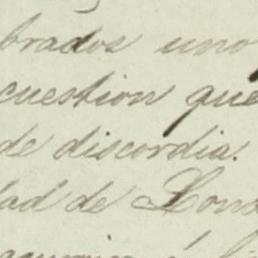 brados uno
cuestion que
de discordia.
dad de Lond